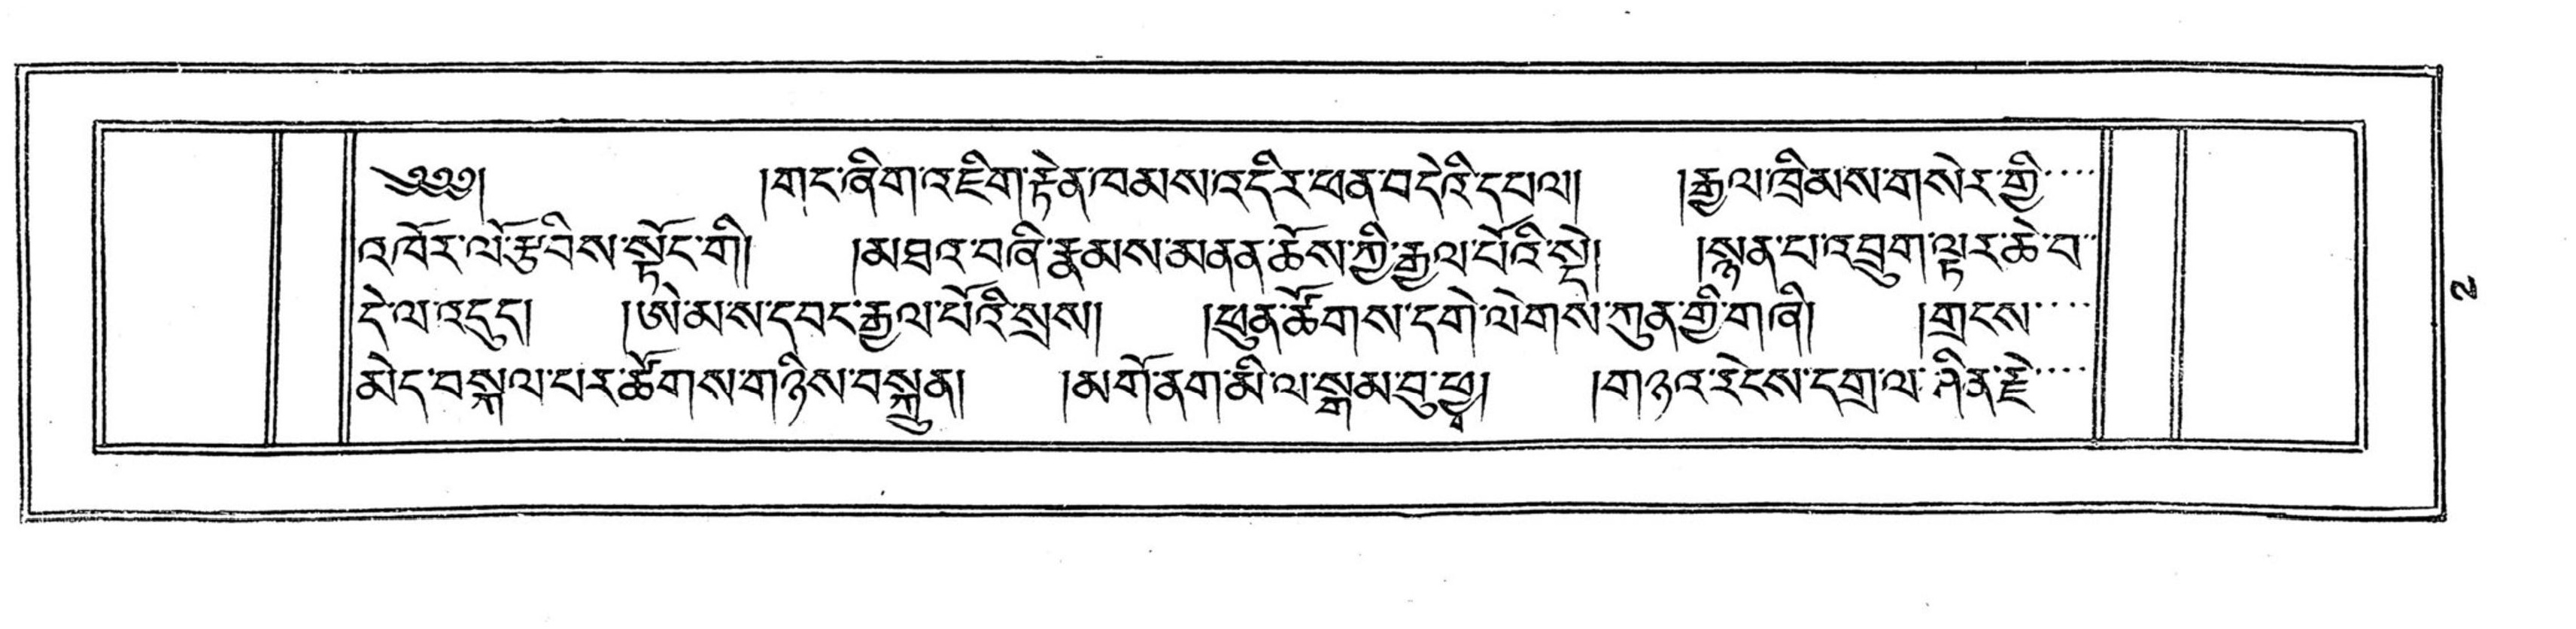 ༄༅༅། །གང་ཞིག་འཇིག་རྟེན་ཁམས་འདིར་ཕན་བདེའི་དཔལ། །རྒྱལ་ཁྲིམས་གསེར་གྱི་....
འཁོར་ལོ་རྩིབས་སྟོང་གི། །མཐའ་བཞི་རྣམས་མནན་ཆོས་ཀྱི་རྒྱལ་པོའི་སྡེ། །སྙན་པ་འབྲུག་ལྟར་ཆེ་བ་..
དེ་ལ་འདུད། །ཨེ་མས་དབང་རྒྱལ་པོའི་སྲས། །ཕུན་ཚོགས་དགེ་ལེགས་ཀུན་གྱི་གཞི། །གྲངས་....
མེད་བསྐལ་པར་ཚོགས་གཉིས་བསྐྲུན། །མགོ་ནག་མི་ལ་སྒམ་བུ་ཕྱྭ། །གཉའ་རེངས་དགྲ་ལ་ཤིན་རྗེ་....